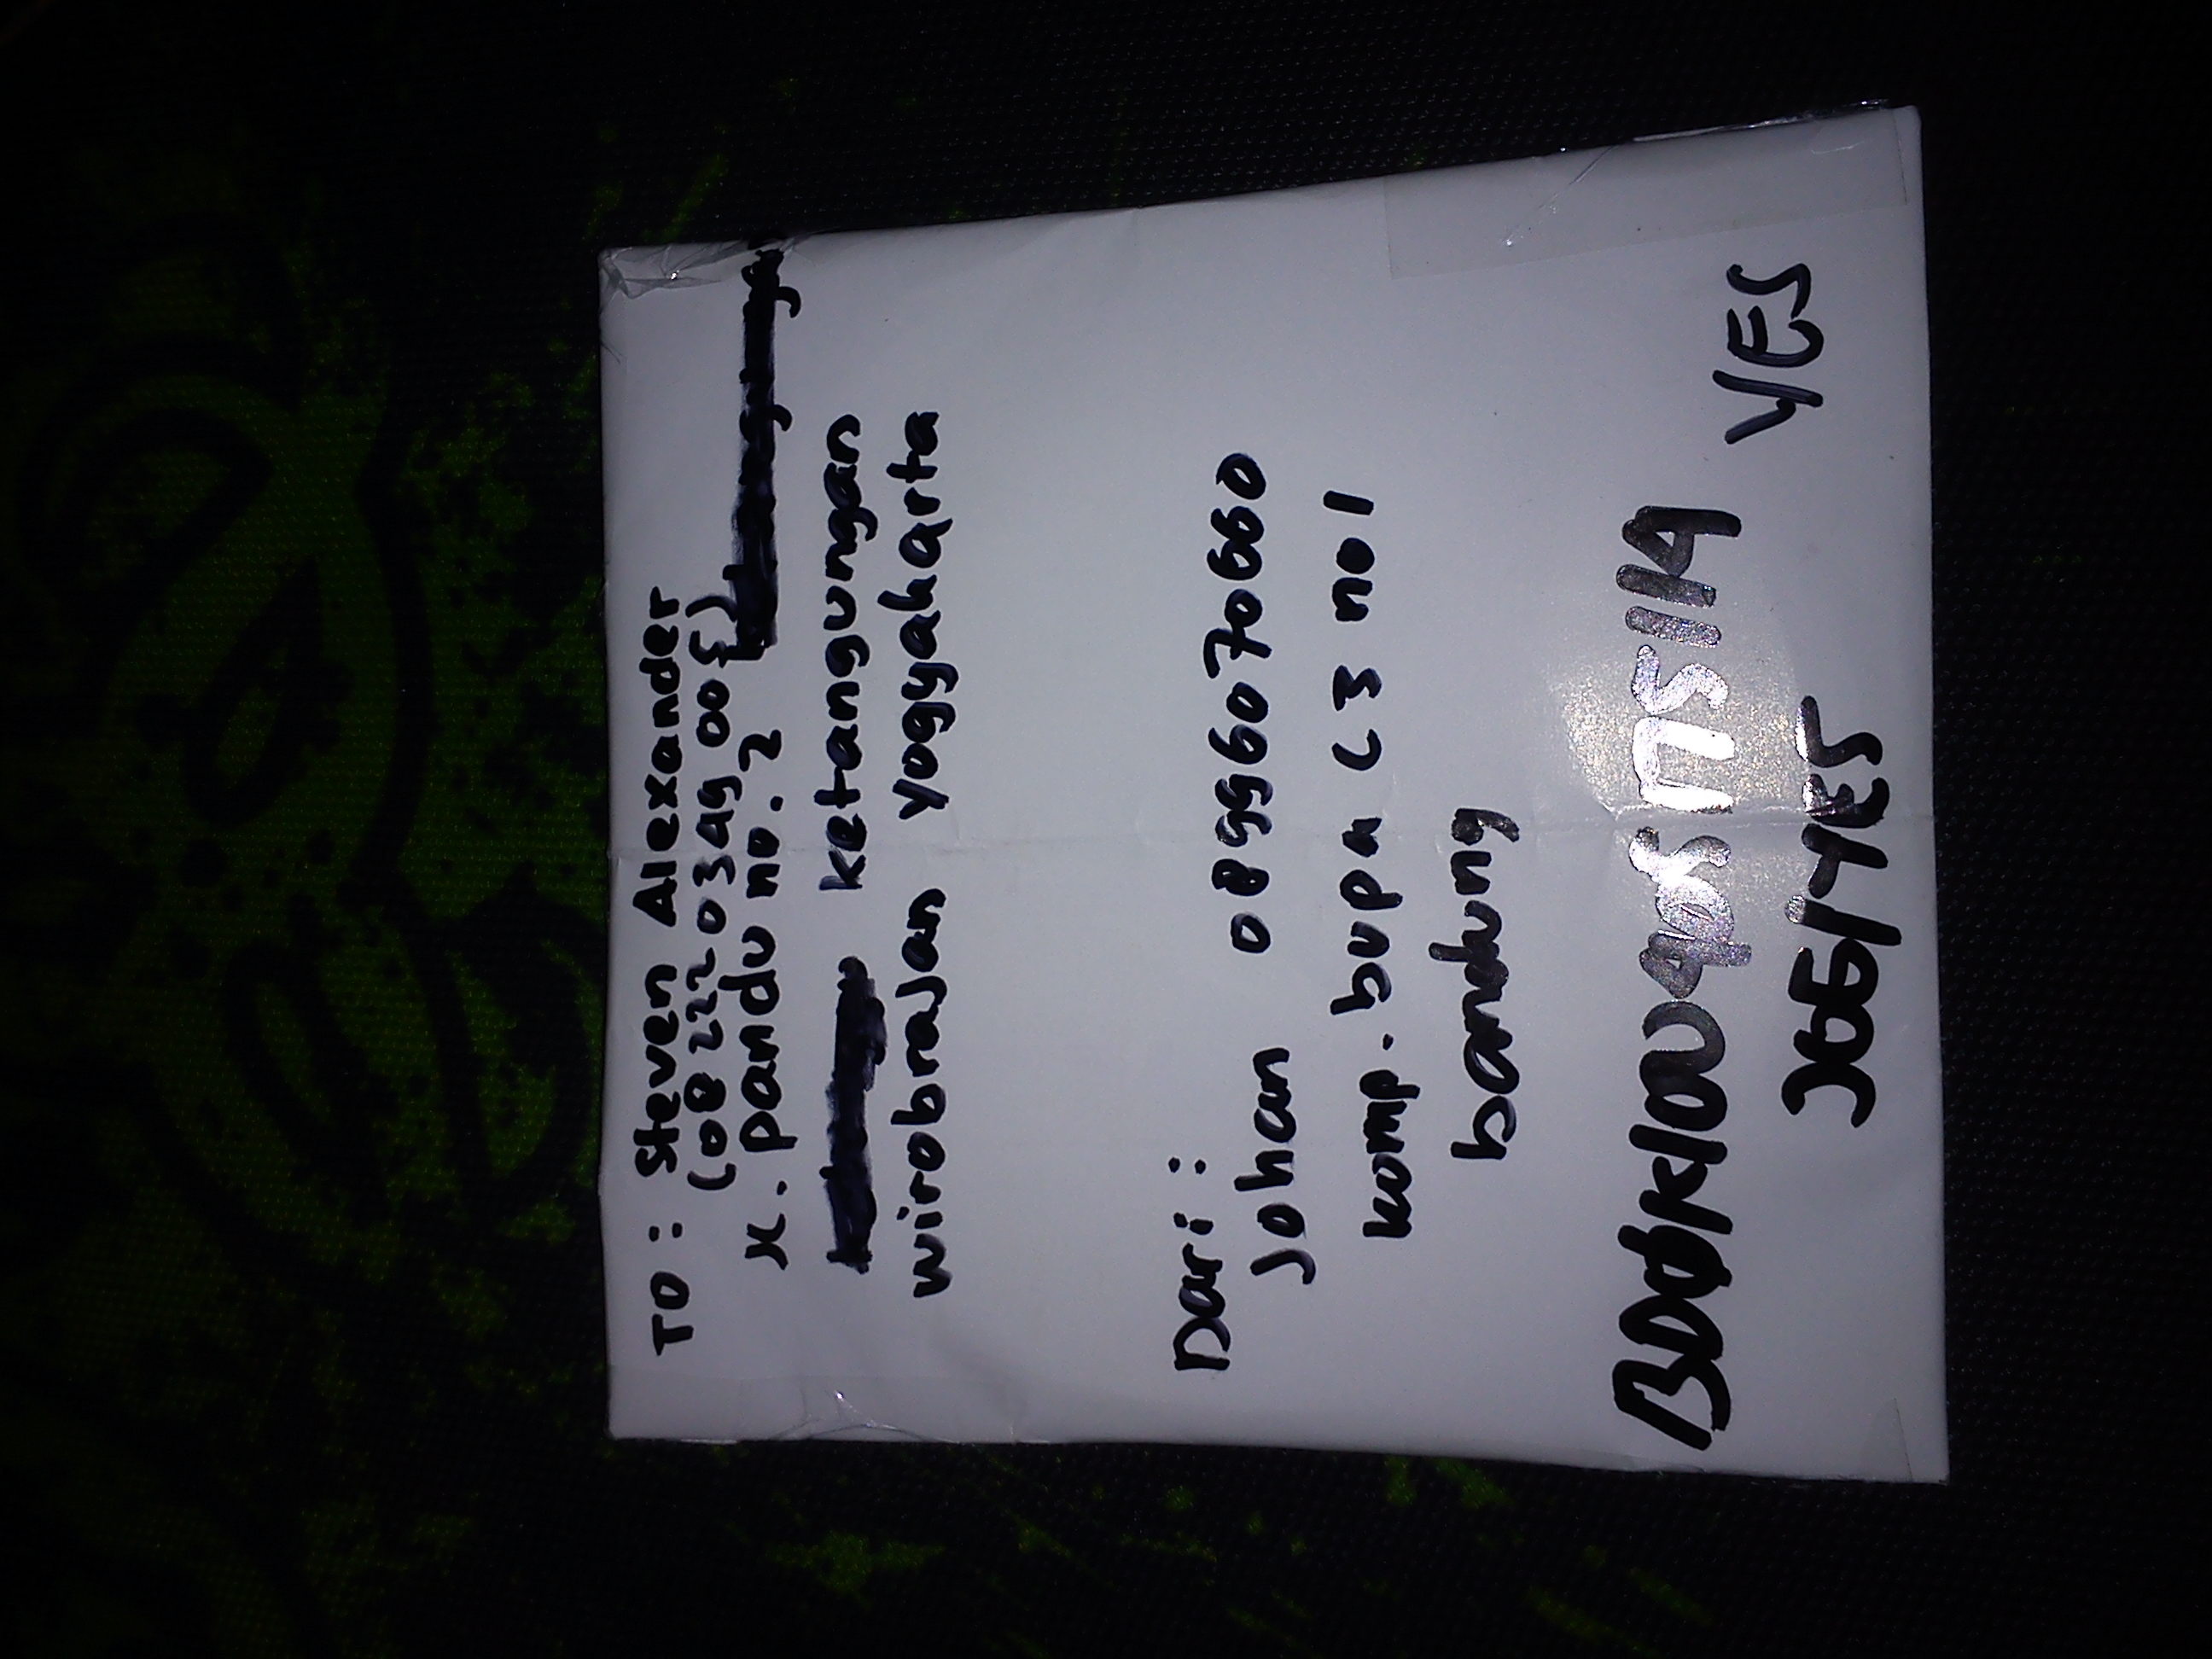 TO : Steven Alexander
(08 222 0349 005)
Jl. pandu no. 2
ketangungan
wirobrajan yogyakarta
Dari :
Johan 089960 70660
komp. bupa C3 no 1
bandung
YES
JOG/YES